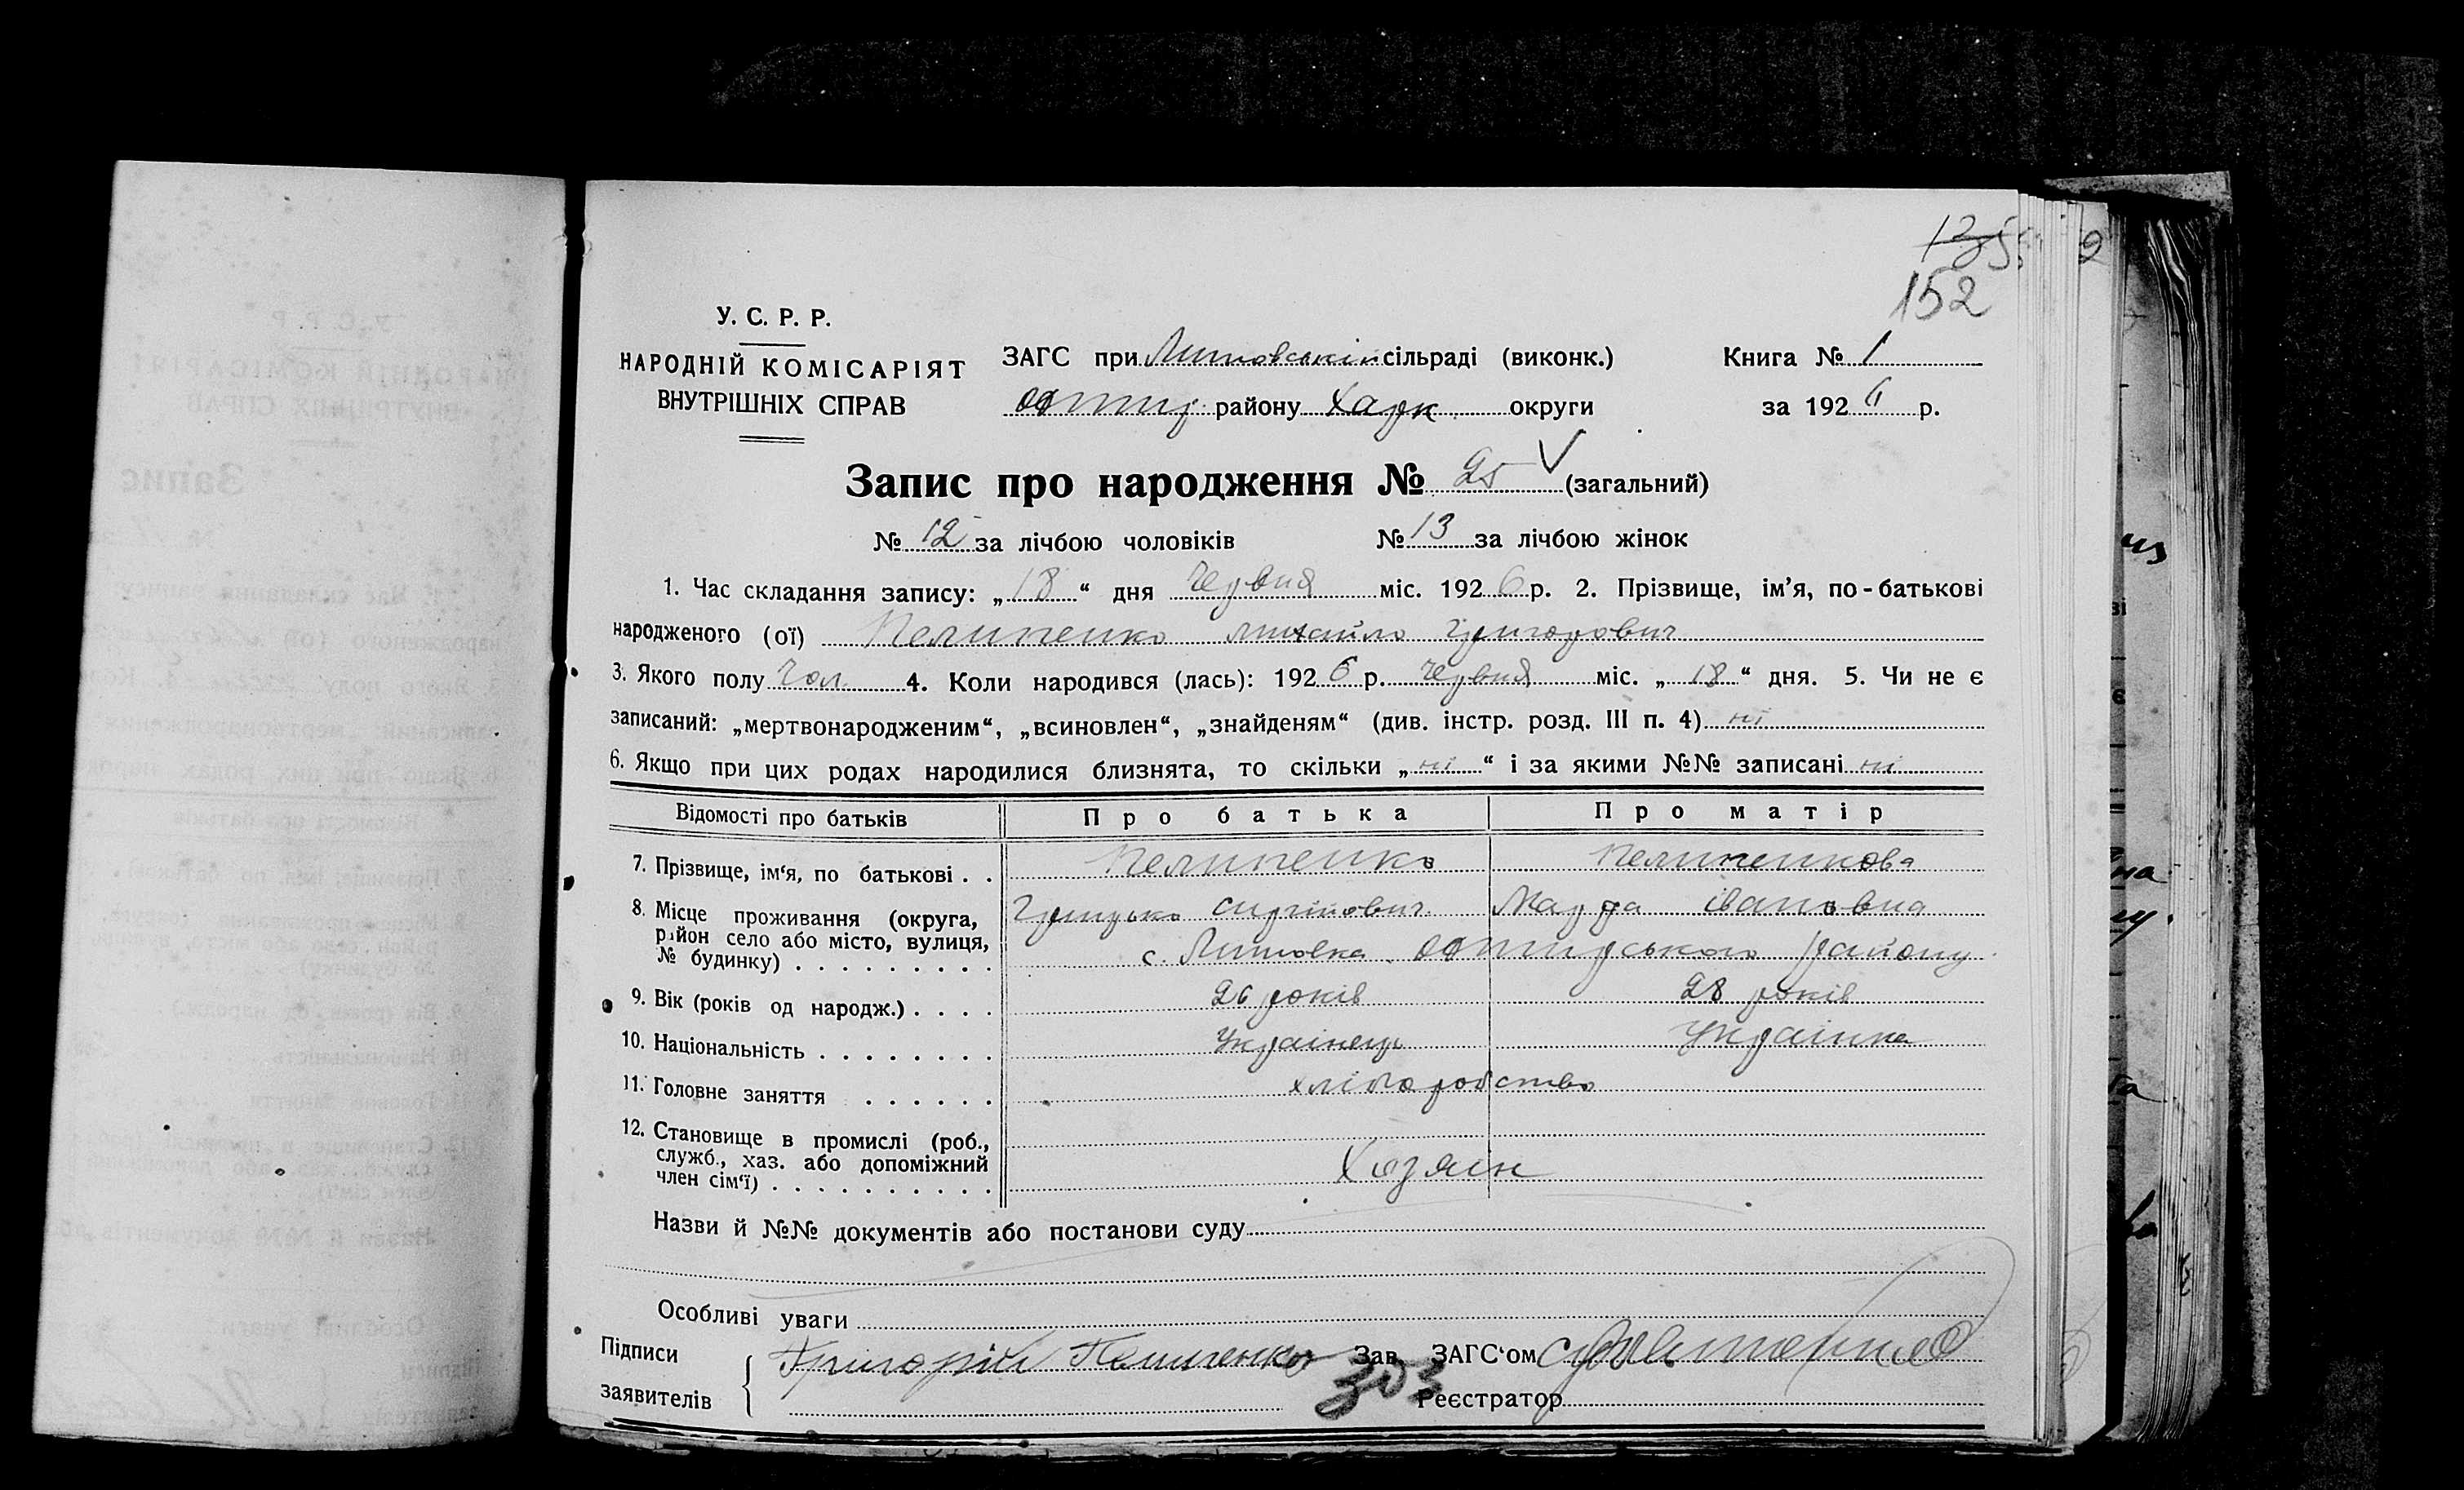 152
У. С. Р. Р.
НАРОДНІЙ КОМІСАРІЯТ
ВНУТРІШНІХ СПРАВ
ЗАГС при Литовській сільраді (виконк.)
району Харк. округи
Книга № 1
за 1926 р.
Запис про народження № 25 (загальний)
№ 12 за лічбою чоловіків № 13 за лічбою жінок
1. Час складання запису: „18“ дня Червня міс. 1926 р. 2. Прізвище, ім’я, по-батькові
народженого (ої) Пелипенко Михайло Григорович
3. Якого полу Чол. 4. Коли народився (лась): 1926 р. Червня міс. „18“ дня. 5. Чи не є
записаний: „мертвонародженим“, „всиновлен“, „знайденям“ (див. інстр. розд. III п. 4) ні
6. Якщо при цих родах народилися близнята, то скільки „ні“ і за якими №№ записані ні
Відомості про батьків Про батька Про матір
7. Прізвище, ім‘я, по батькові . . Пелипенко Пелипенкова
8. Місце проживання (округа, Грицько Сиргійович Мар Івановна
район село або місто, вулиця,
№ будинку) . . . . . . . . . с. Литовка району
9. Вік (років од народж.) . . . . 26 років 28 років
10. Національність . . . . . . . . Українець Українка
11. Головне заняття . . . . . . хліборобство
12. Становище в промислі (роб.,
служб., хаз. або допоміжний
член сім‘ї) . . . . . . . . . . Хозяин
Назви й №№ документів або постанови суду
Особливі уваги
Підписи
заявителів
Григорій Пелипенко
303
Зав. ЗАГС‘ом
Реєстратор